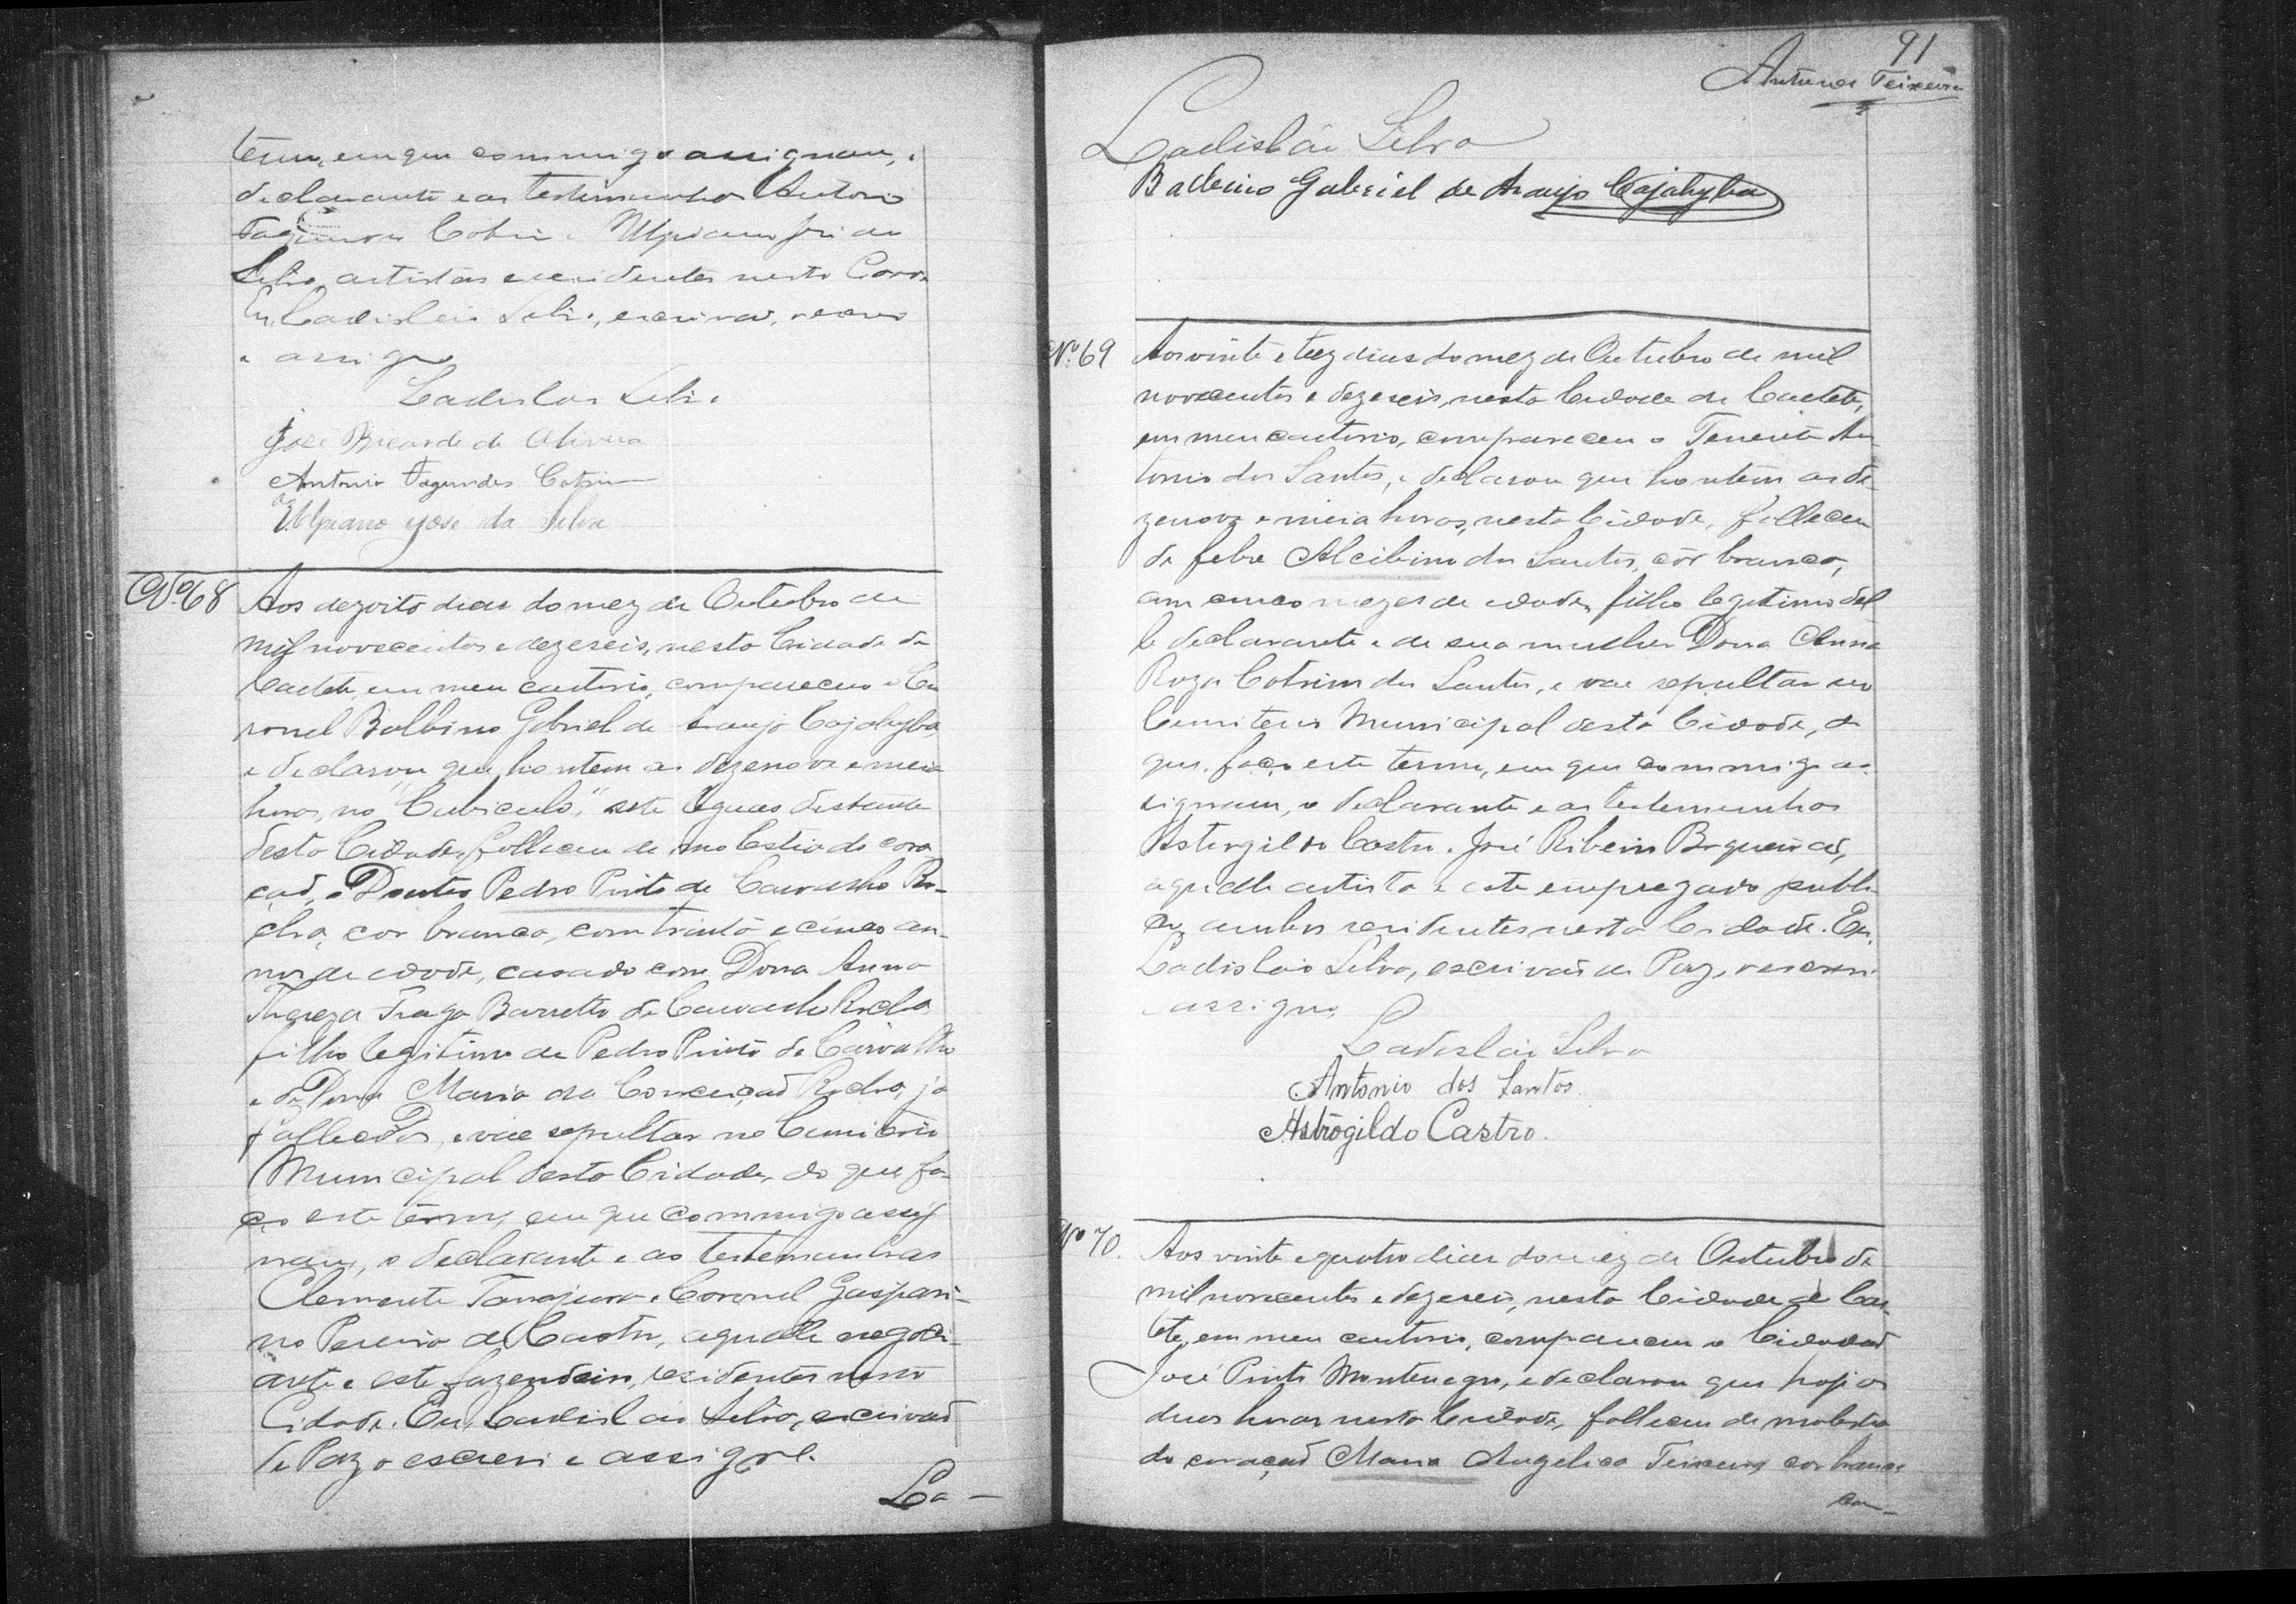 termo, em que commigo assignam, o
declarante e as testimunhas Antonio
Fagundes Cotrim e Ulpiano José da
Silva, artistas e residentes nesta
Eu, Ladislau Silva, escrivão, escrevi
e assigno
Ladislau Silva
José Ricardo de Oliveira
Antonio Fagundes Cotrim
Ulpiano José da Silva
Nº 68 Aos dezoito dias do mez de Outubro de
mil novecentos e dezeseis, nesta Cidade de
Caeteté, em meu cartorio, compareceu o Co
ronel Balbino Gabriel de Araujo Cajahyba,
e declarou que hontem as dezenove e meia
horas, no "Cubiculo," sete leguas distante
desta Cidade, falleceu de molestia do cora
ção, o Doutor Pedro Pinto de Carvalho Ro-
cha, cor branca, com trinta e cinco an-
nos de edade, casado com Dona Anna
Thereza Fraga Barretto de Carvalho Rocha
filho legitimo de Pedro Pinto de Carvalho
e de Dona Maria da Conceição Rocha, ja
fallecidos, e vae sepultar no Cemiterio
Municipal desta Cidade, do que fa-
ço este termo, em que commigo assig
nam, o declarante e as testemunhas
Clemente Tanajura e Coronel Gaspari-
no Pereira de Castro, aquelle negoci-
ante e este fazendeiro, residentes nesta
Cidade. Eu, Ladislau Silva, escrivão
de Paz o escrevi e assigno.
La-
91
Antunes Teixeira
Ladisláu Silva
Balbino Gabriel de Araujo Cajahyba
Nº 69 Aos vinte e trez dias do mez de Outubro de mil
novecentos e dezeseis, nesta Cidade de Caeteté,
em meu cartorio, compareceu o Tenente An
tonio dos Santos, e declarou que hontem as de-
zenove e meia horas, nesta Cidade, falleceu
de febre Alcibino dos Santos, côr branca,
com cinco mezes de edade, filho legitimo del
le declarante e de sua mulher Dona Anna
Roza Cotrim dos Santos, e vae sepultar no
Cemiterio Municipal desta Cidade, do
que, faço este termo, em que commigo as-
signam, o declarante e as testemunhas
Astrogildo Castro e José Ribeiro
aquelle artista e este empregado publi-
co, ambos residentes nesta Cidade. Eu,
Ladislau Silva, escrivão de Paz, o escrevi
e assigno
Ladislau Silva
Antonio dos Santos
Astrogildo Castro.
Nº 70. Aos vinte e quatro dias do mez de Outubro de
mil novecentos e dezeseis, nesta Cidade de Cae-
teté, em meu cartorio, compareceu o Cidadão
José Pinto Montenegro, e declarou que hoje as
duas horas nesta Cidade, falleceu de molestia
do coração Maria Angelica Teixeira, cor branca
com-